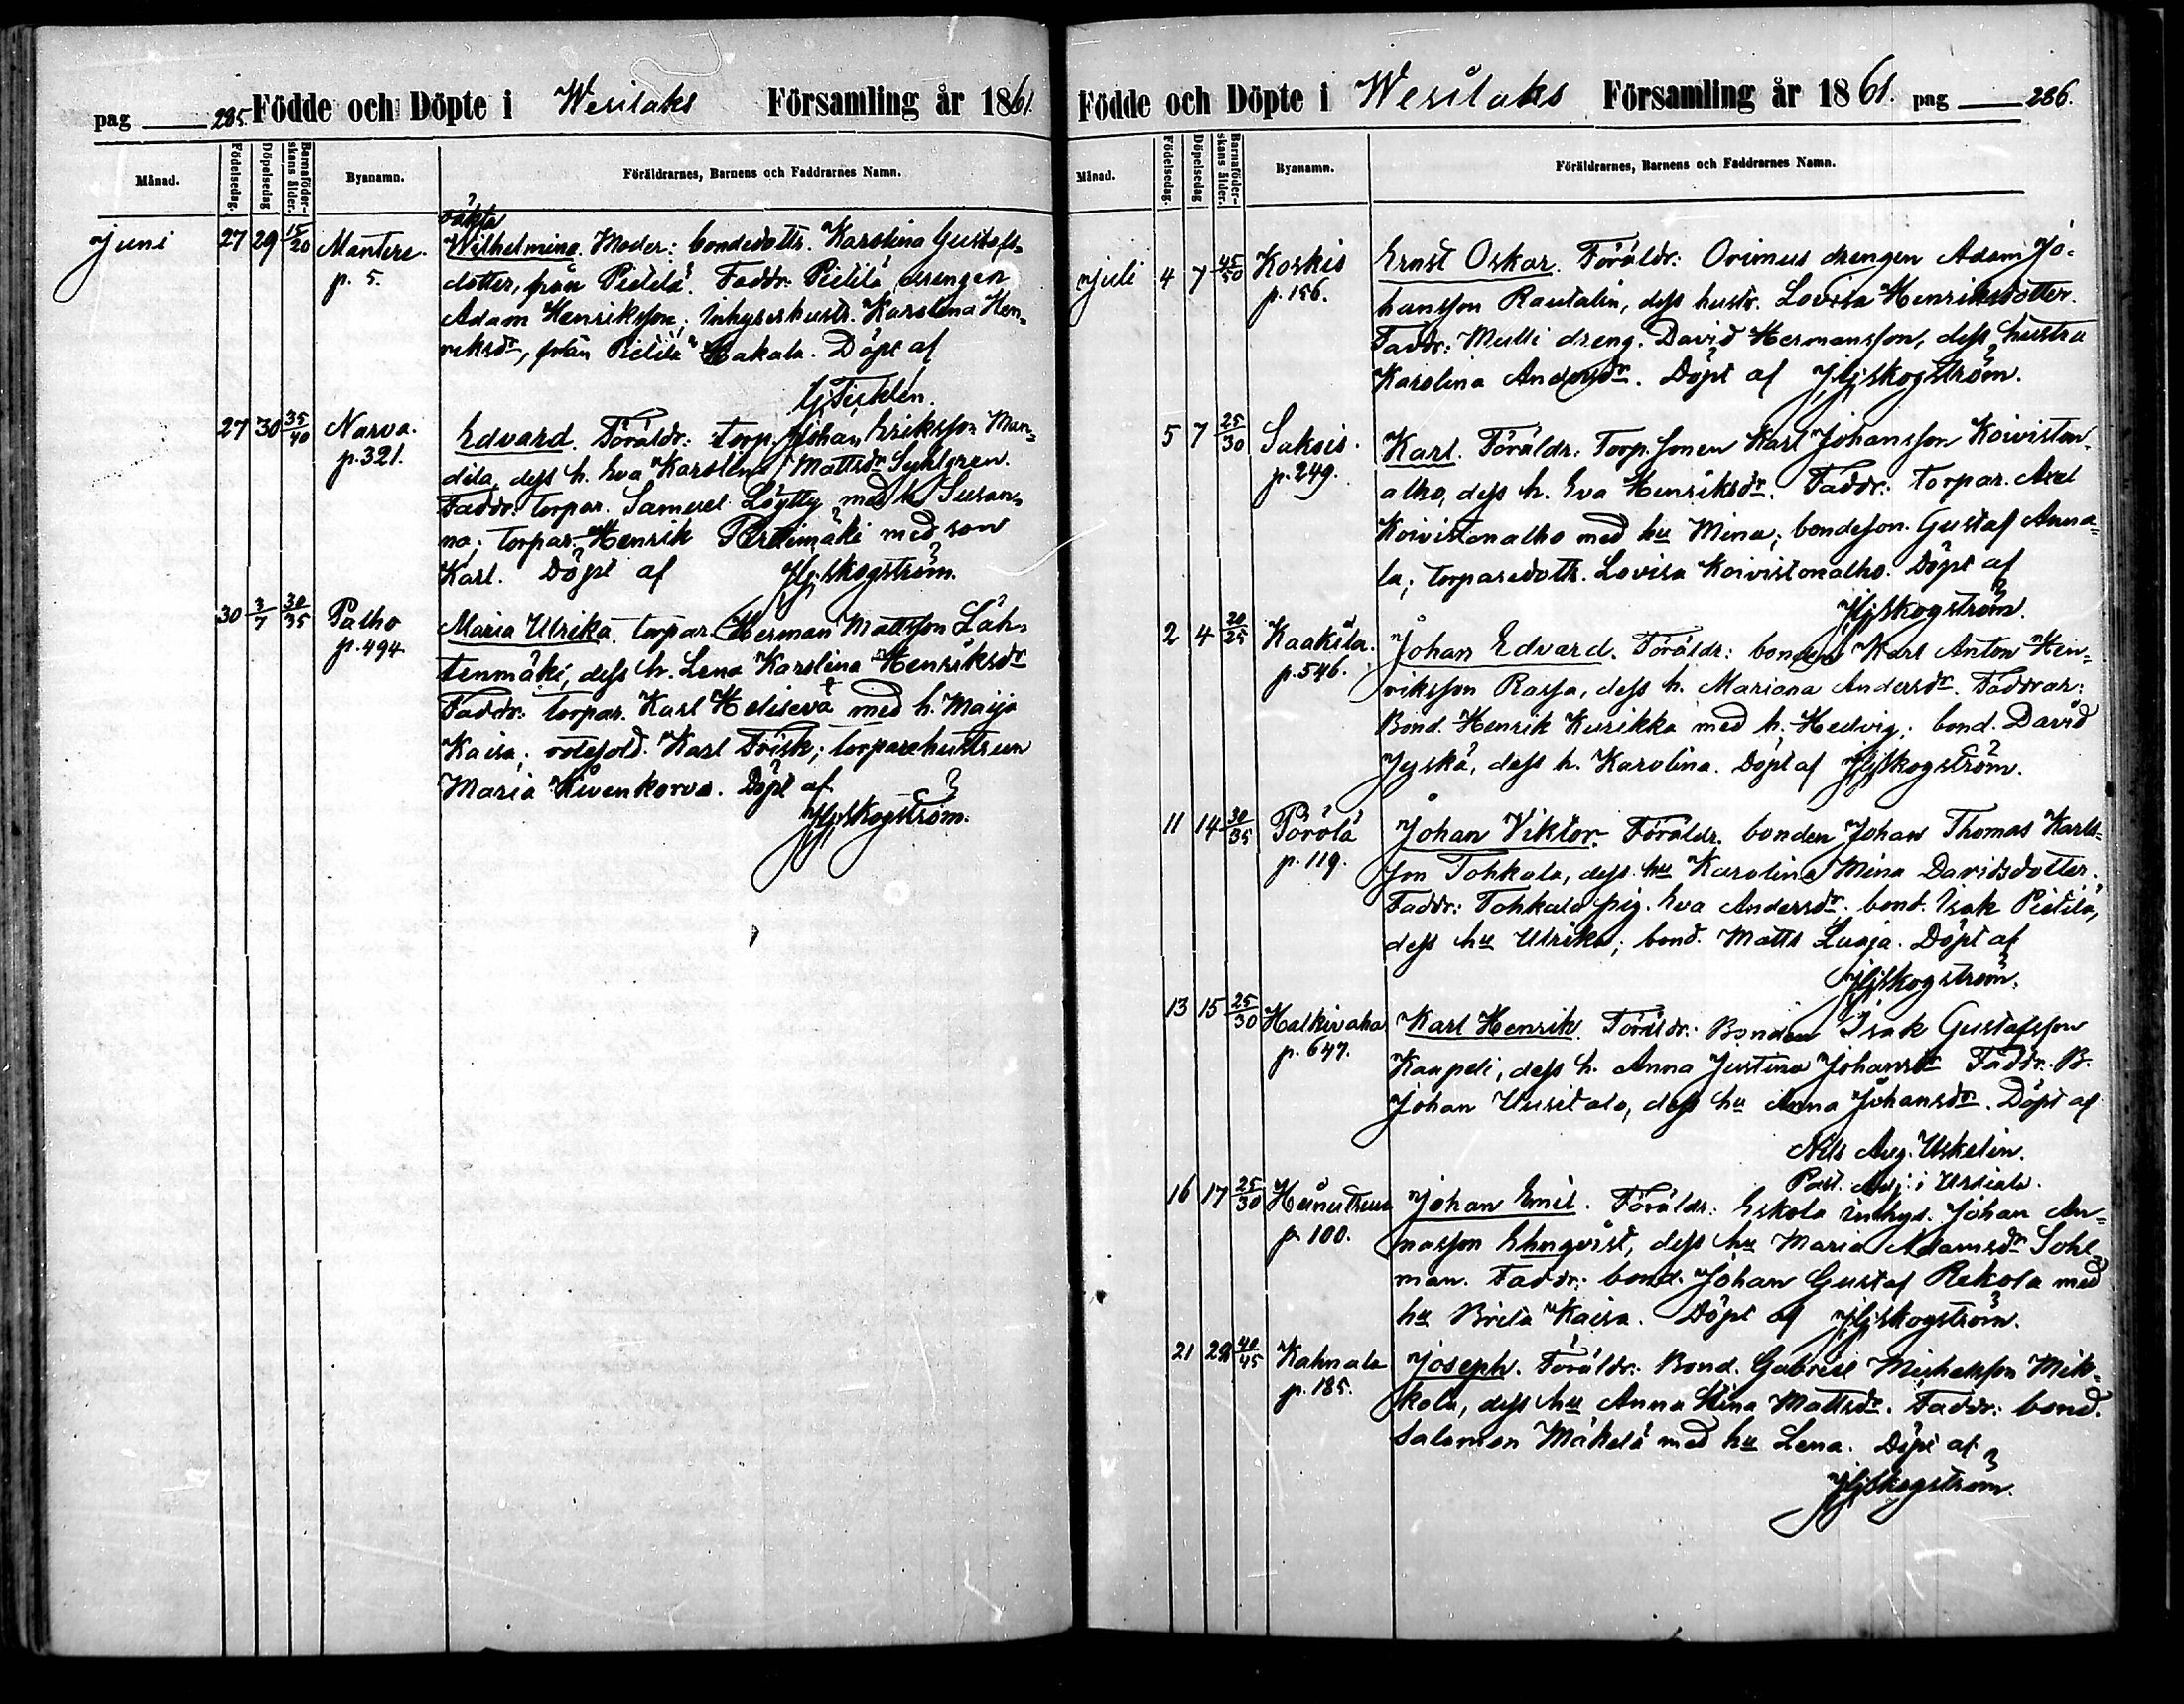 pag 285. Födde och Döpte i Wesilaks Församling år 1861.
Månad. Födelsedag. Döpelsedag Barnaföderskans ålder. Byanamn. Föräldrarnes, Barnens och Faddrarnes Namn.
oäkta
Juni 27 29 15/20 Mantere. Wilhelmina. Moder: bondedottr. Karolina Gustafs-
p. 5. dotter, från Pietilä. Faddr: Pietilä drengen
Adam Henriksson; inhyseshustr. Karolina Hen-
riksdr, från Pietilä Hakala. Döpt af
27 30 35/40 Narva. Edvard. Föräldr: torp. Johan Eriksson Man-
p. 321. dila, dess h. Eva Karolina Mattsdr
Faddr: torpar. Samuel Löytty med h. Susan-
na; torpar. Henrik Perttimäki med son
Karl. Döpt af Skogström.
30 3/7 30/35 Palho Maria Ulrika. torpar. Herman Mattsson Läh-
p. 494. tenmäki, dess h. Lena Karolina Henriksdr
Faddr: torpar. Karl Helisevä med h. Maija
Kaisa; rotesold. Karl Frisk; torparehustrun
Maria Kivenkorva. Döpt af
Skogström.
Födde och Döpte i Wesilaks Församling år 1861. pag 286.
Månad. Födelsedag. Döpelsedag Barnaföderskans ålder. Byanamn. Föräldrarnes, Barnens och Faddrarnes Namn.
Juli 4 7 45/50 Koskis Ernst Oskar. Föräldr: Orimus drengen Adam Jo-
p. 156. hansson Rautalin, dess hustr. Lovisa Henriksdotter.
Faddr: Mulli dreng. David Hermansson, dess hustru
Karolina Andersdr. Döpt af Skogström.
5 7 25/30 Saksis. Karl. Föräldr: Torp. sonen Karl Johansson Koiviston-
p. 249. alho, dess h. Eva Henriksdr. Faddr: torpar. Axel
Koivistonalho med hu Mina; bondeson. Gustaf Anna-
la; torparedottr. Lovisa Koivistonalho. Döpt af
Skogström.
2 4 20/25 Kaakila. Johan Edvard. Föräldr: bonden Karl Anton Hen-
p. 546. riksson Rassa, dess h. Mariana Andersdr. Faddrar:
Bond. Henrik Kurikka med h. Hedvig; bond. David
Jyskä, dess h. Karolina. Döpt af Skogström.
11 14 30/35 Pörölä Johan Viktor. Föräldr. bonden Johan Thomas Karls-
p. 119. son Tohkala, dess hu Karolina Mina Davidsdotter.
Faddr: Tohkala pig. Eva Andersdr. bond. Isak Pietilä,
dess hu Ulrika; bond. Matts Luoja. Döpt af
Skogström.
13 15 25/30 Halkivaha Karl Henrik. Föräldr: Bonden Isak Gustafsson
p. 647. Kaapeli, dess h. Anna Justina Johansdr Faddr: B.
Johan Uusitalo, dess hu Anna Johansdr. Döpt af
Nils Aug. Uskelin.
Past. Adj. i Urdiala.
16 17 25/30 Johan Emil. Föräldr: Eskola inhys. Johan An-
p. 100. nasson Ehnqvist, dess hu Maria Adamsdr Sohl-
man. Faddr: bond. Johan Gustaf Rekola med
hu Brita Kaisa. Döpt af Skogström.
21 28 40/45 Kahnala Joseph. Föräldr: Bond. Gabriel Michelsson Mik-
p. 185. kola, dess hu Anna Stina Mattsdr. Faddr: bond.
Salomon Mäkelä med hu Lena. Döpt af
Skogström.